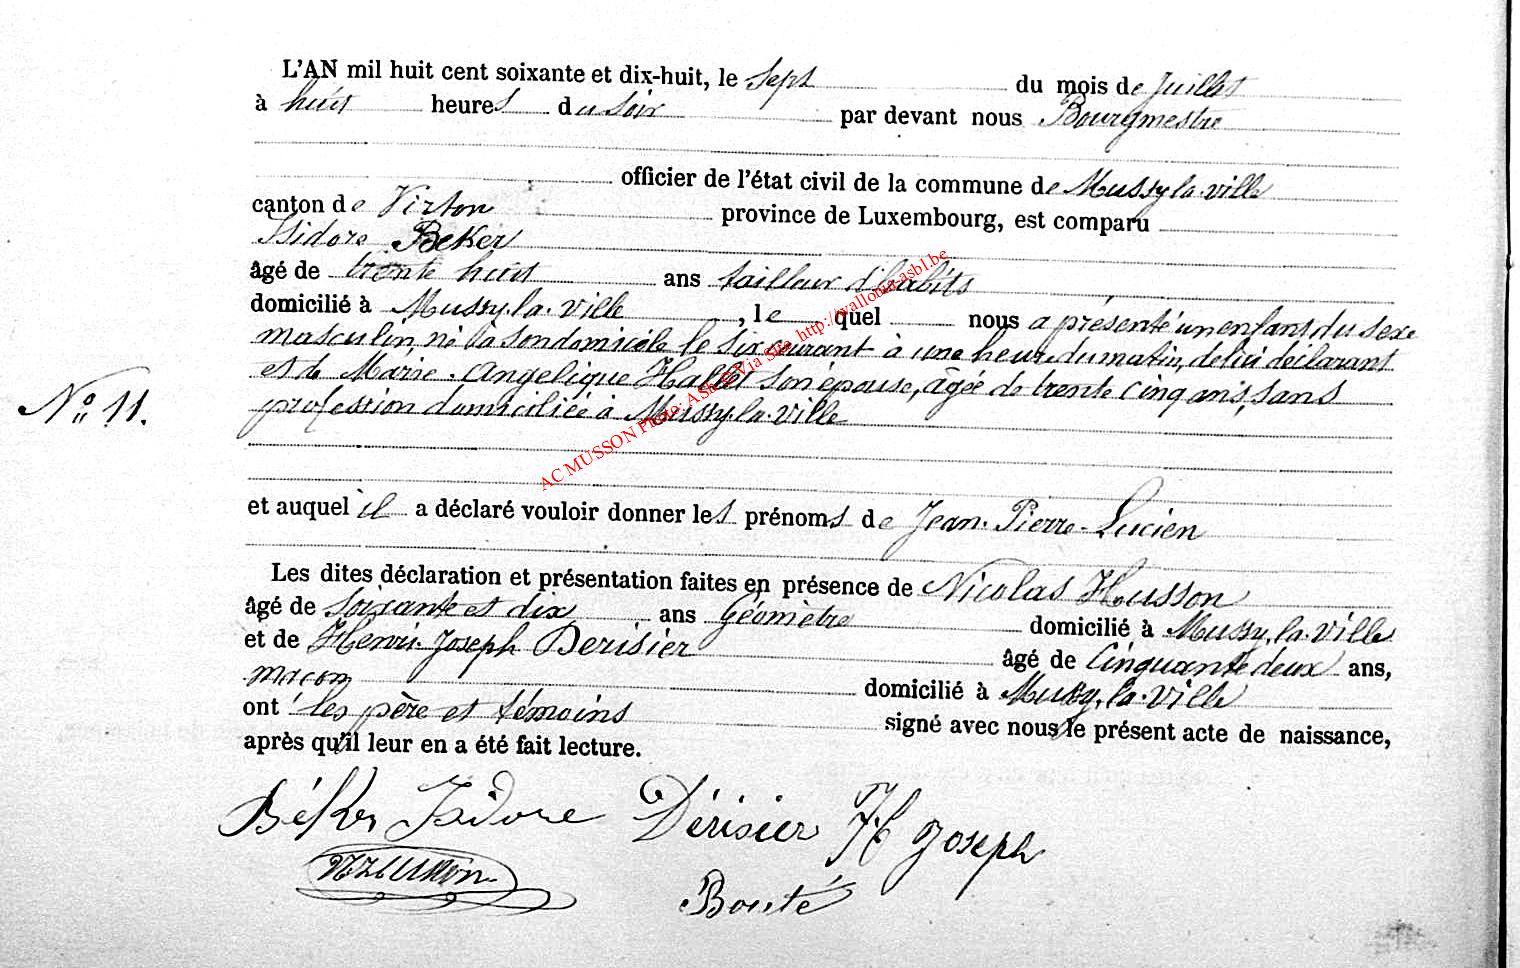 L'AN mil huit cent soixante et dix-huit, le Sept du mois de Juillet
à huit heures du soir par devant nous Bourgmestre
officier de l'état civil de la commune de Mussy-la-ville
canton de Virton province de Luxembourg, est comparu
Isidore Beker
âgé de trente huit ans tailleur d'habits
domicilié à Mussy-la-ville, le quel nous a présenté un enfant du sexe
masculin, né à son domicile le six courant à une heure du matin, de lui déclarant
et de Marie-Angelique Hallet son épouse, âgée de trente cinq ans, sans
No 11.
profession domiciliée à Mussy-la-ville
AC MUSSON Photo: ASh © Via Site http://wallonia-asbl.be
et auquel il a déclaré vouloir donner les prénoms de Jean-Pierre-Lucien
Les dites déclaration et présentation faites en présence de Nicolas Husson
âgé de soixante et dix ans Géomètre domicilié à Mussy-la-ville
et de Henri-Joseph Derisier âgé de Cinquante deux ans,
macon domicilié à Mussy-la-ville
ont les père et témoins signé avec nous le présent acte de naissance,
après qu'il leur en a été fait lecture.
Béker Isidore Dérisier H Joseph
Bouté